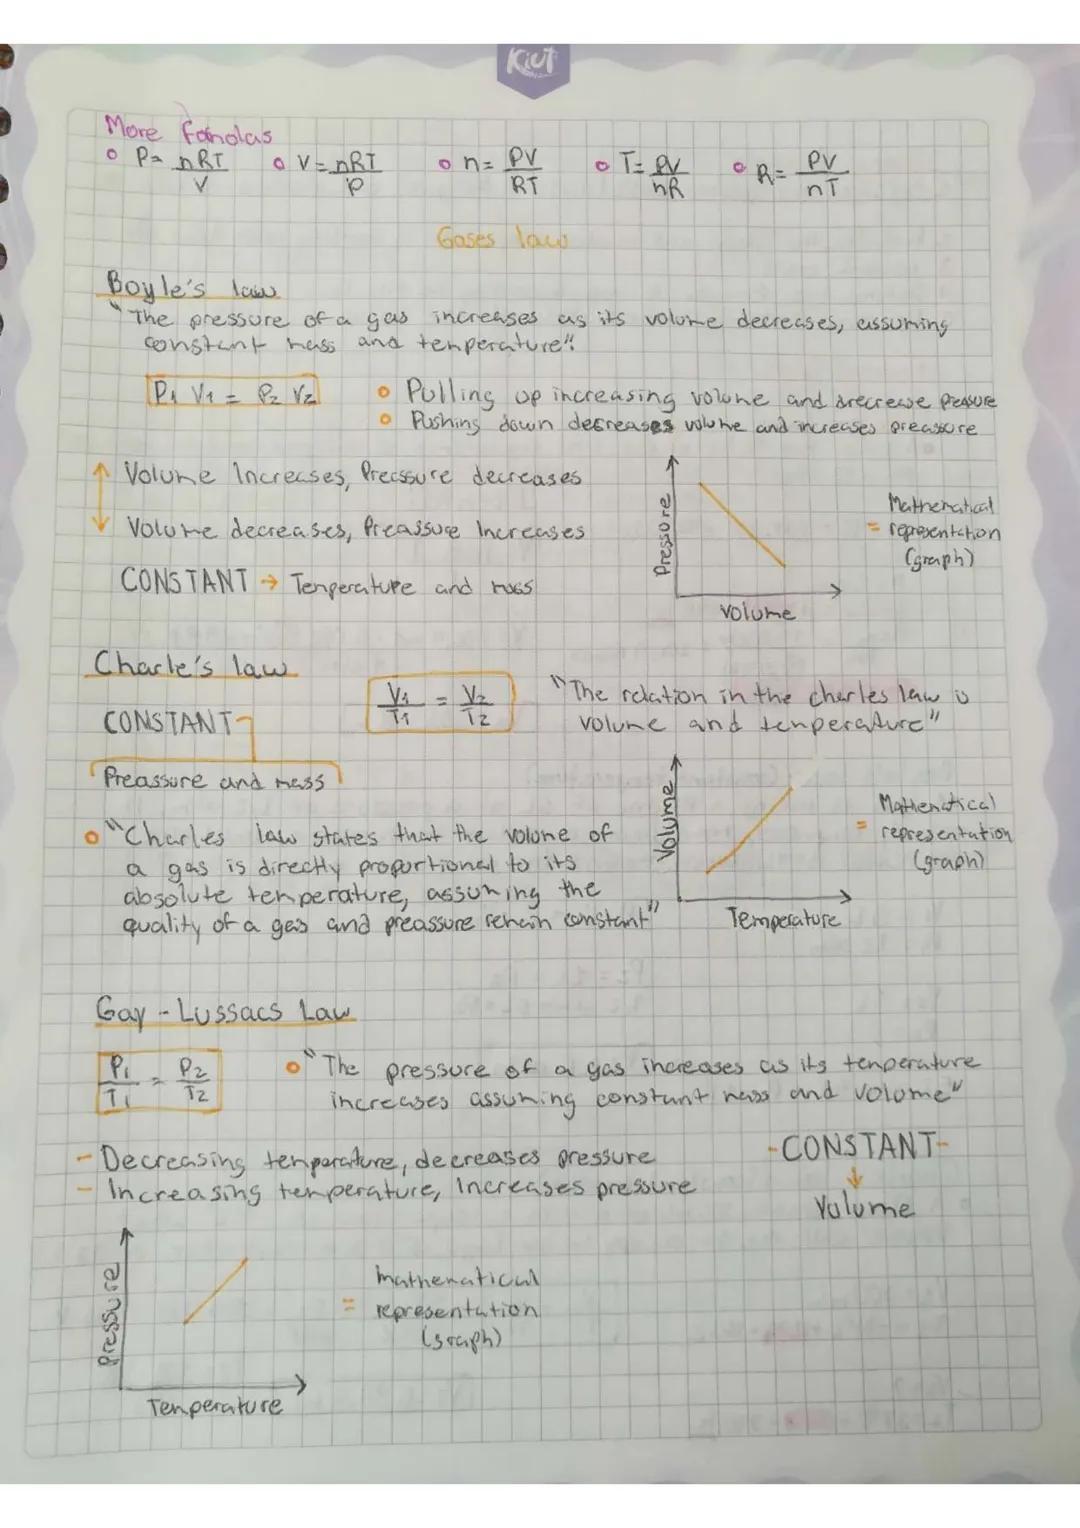 Kiut
More Fomolas
P= nRT/V  V= nRT/P  n= PV/RT  T= PV/nR  R= PV/nT
Gases law
Boyle's law
"The pressure of a gas increases as its volume decreases, assuming
constant mass and temperature".
P1 V1 = P2 V2
Pulling up increasing volume and drecrease preasure
Pushing down decreases volume and increases preassure
Volume Increases, Preassure decreases
Volume decreases, Preassure Increases
CONSTANT → Temperature and mass
Pressure
Volume
Mathematical
= representation
(graph)
Charle's law
V1/T1 = V2/T2
"The relation in the charles law is
volume and temperature"
CONSTANT
Preassure and mass
"Charles law states that the volume of
a gas is directly proportional to its
absolute temperature, assuming the
quality of a gas and preassure remain constant"
Volume
Temperature
Mathematical
= representation
(graph)
Gay - Lussacs Law
P1/T1 = P2/T2
"The pressure of a gas increases as its temperature
increases assuming constant mass and volume"
- Decreasing temperature, decreases pressure
- Increasing temperature, Increases pressure
-CONSTANT-
↓
Volume
Pressure
Temperature
mathematical
= representation
(graph)